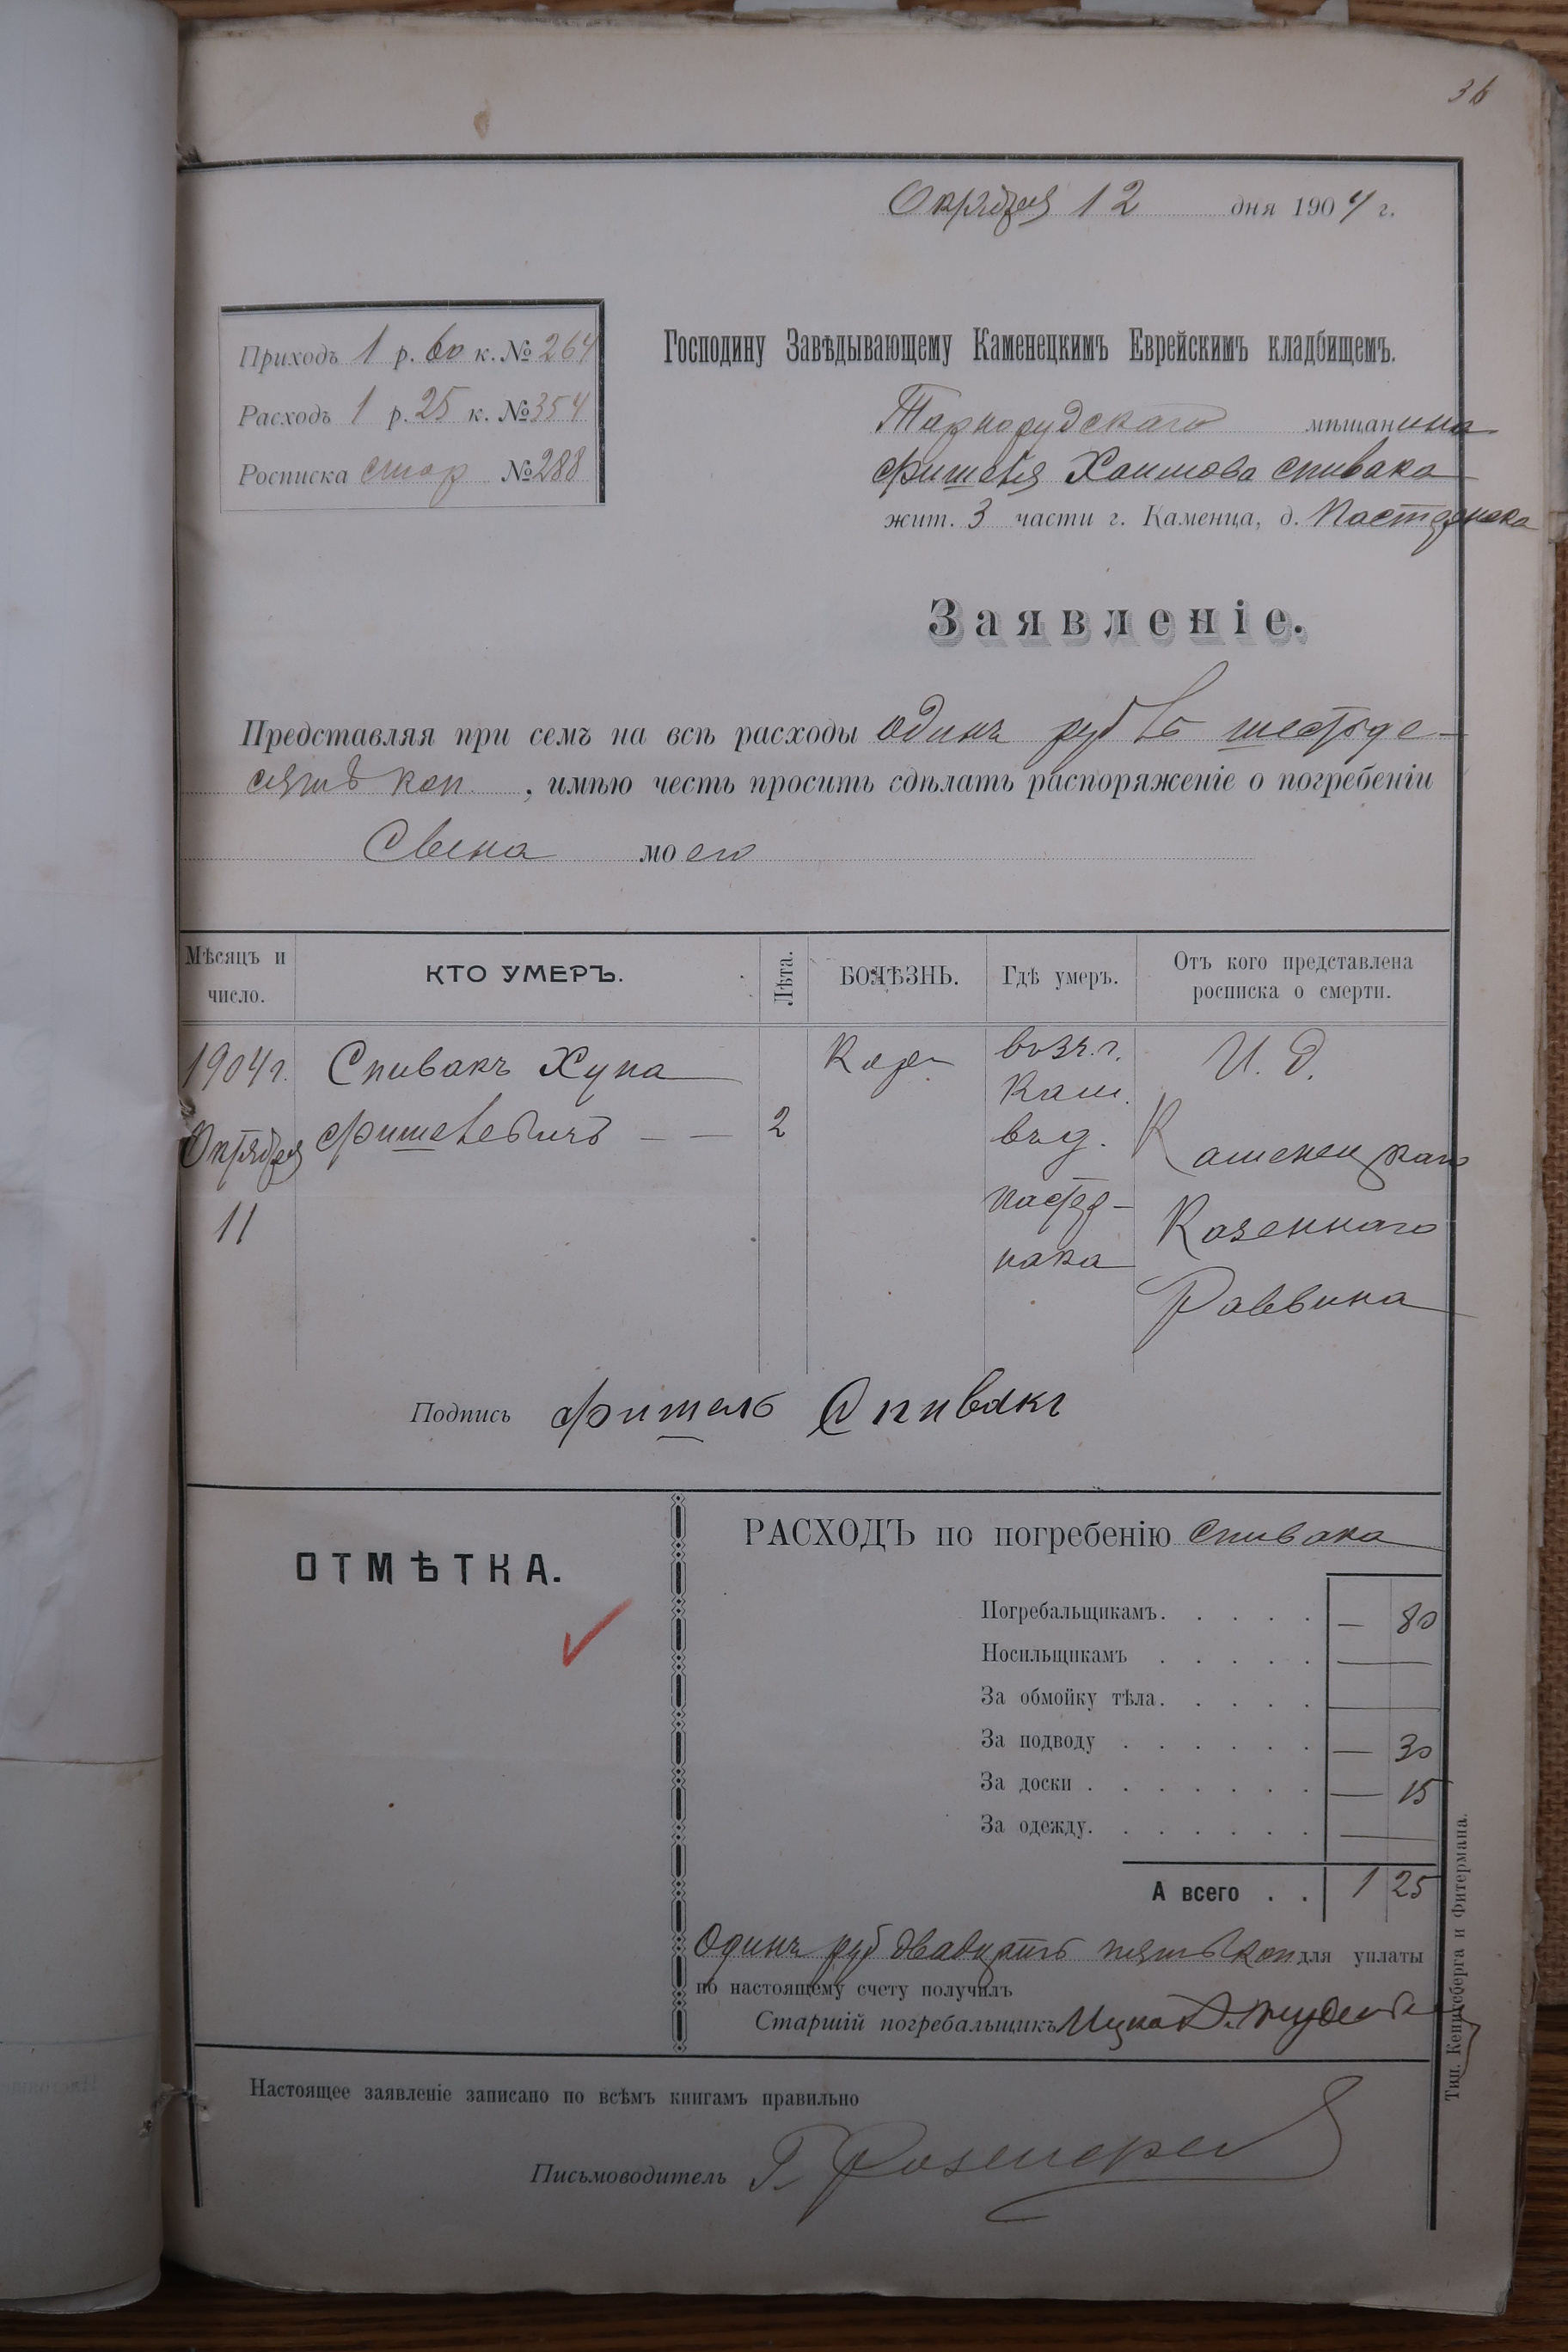 36
Октября 12 дня 1904 г.
Приходъ 1 р. 60 к. № 264
Расходъ 1 р. 25 к. № 354
Росписка стар № 288
Господину Завѣдывающему Каменецкимъ Еврейскимъ кладбищемъ.
Тарнорудскаго мѣщанина
Фишеля Хаимова Спивака
жит. 3 части г. Каменца, д.
Заявленіе.
Представляя при семъ на всѣ расходы одинъ руб шестьде-
сятъ коп. , имѣю честь просить сдѣлать распоряженіе о погребеніи
Сына моего
Мѣсяцъ и число.
КТО УМЕРЪ.
Лѣта.
БОЛѢЗНЬ.
Гдѣ умеръ.
Отъ кого представлена росписка о смерти.
1904 г. Октября 11
Спивакъ Хуна
Фишелевичъ — —
2
Кам.
И. д.
Каменецкаго
Казеннаго
Раввина
Подпись Фишель Спивакъ
ОТМѢТКА.
РАСХОДЪ по погребенію Спивака
Погребальщикамъ. . . . . — 80
Носильщикамъ . . . . . —
За обмойку тѣла. . . . . —
За подводу . . . . . . — 30
За доски . . . . . . . — 15
За одежду. . . . . . . —
А всего . . 1 25
Одинъ руб двадцать пять коп для уплаты
по настоящему счету получилъ
Старшій погребальщикъ Ицко
Настоящее заявленіе записано по всѣмъ книгамъ правильно
Письмоводитель Г.
Тип. Кенигсберга и Фитермана.